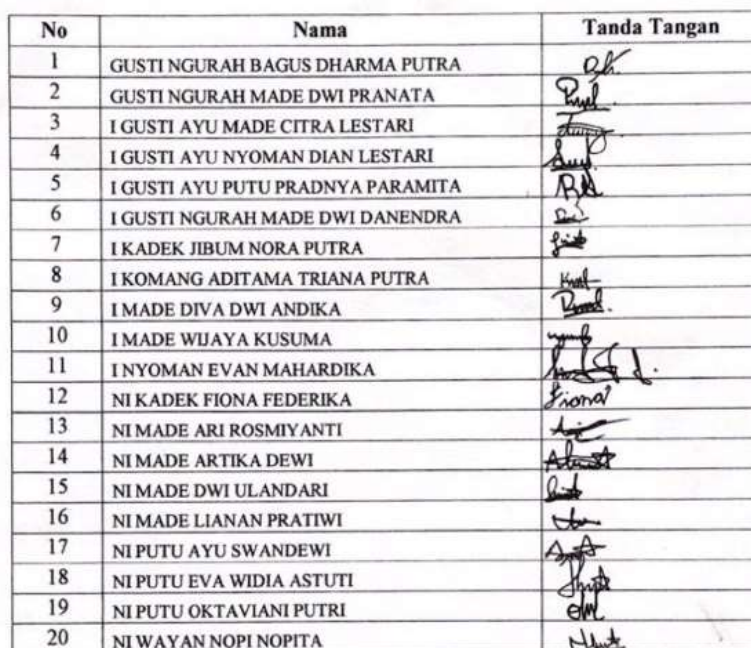 No Nama Tanda Tangan
1 GUSTI NGURAH BAGUS DHARMA PUTRA
2 GUSTI NGURAH MADE DWI PRANATA
3 I GUSTI AYU MADE CITRA LESTARI
4 I GUSTI AYU NYOMAN DIAN LESTARI
5 I GUSTI AYU PUTU PRADNYA PARAMITA
6 I GUSTI NGURAH MADE DWI DANENDRA
7 I KADEK JIBUM NORA PUTRA
8 I KOMANG ADITAMA TRIANA PUTRA
9 I MADE DIVA DWI ANDIKA
10 I MADE WIJAYA KUSUMA
11 I NYOMAN EVAN MAHARDIKA
12 NI KADEK FIONA FEDERIKA Fiona
13 NI MADE ARI ROSMIYANTI
14 NI MADE ARTIKA DEWI
15 NI MADE DWI ULANDARI
16 NI MADE LIANAN PRATIWI
17 NI PUTU AYU SWANDEWI
18 NI PUTU EVA WIDIA ASTUTI
19 NI PUTU OKTAVIANI PUTRI
20 NI WAYAN NOPI NOPITA